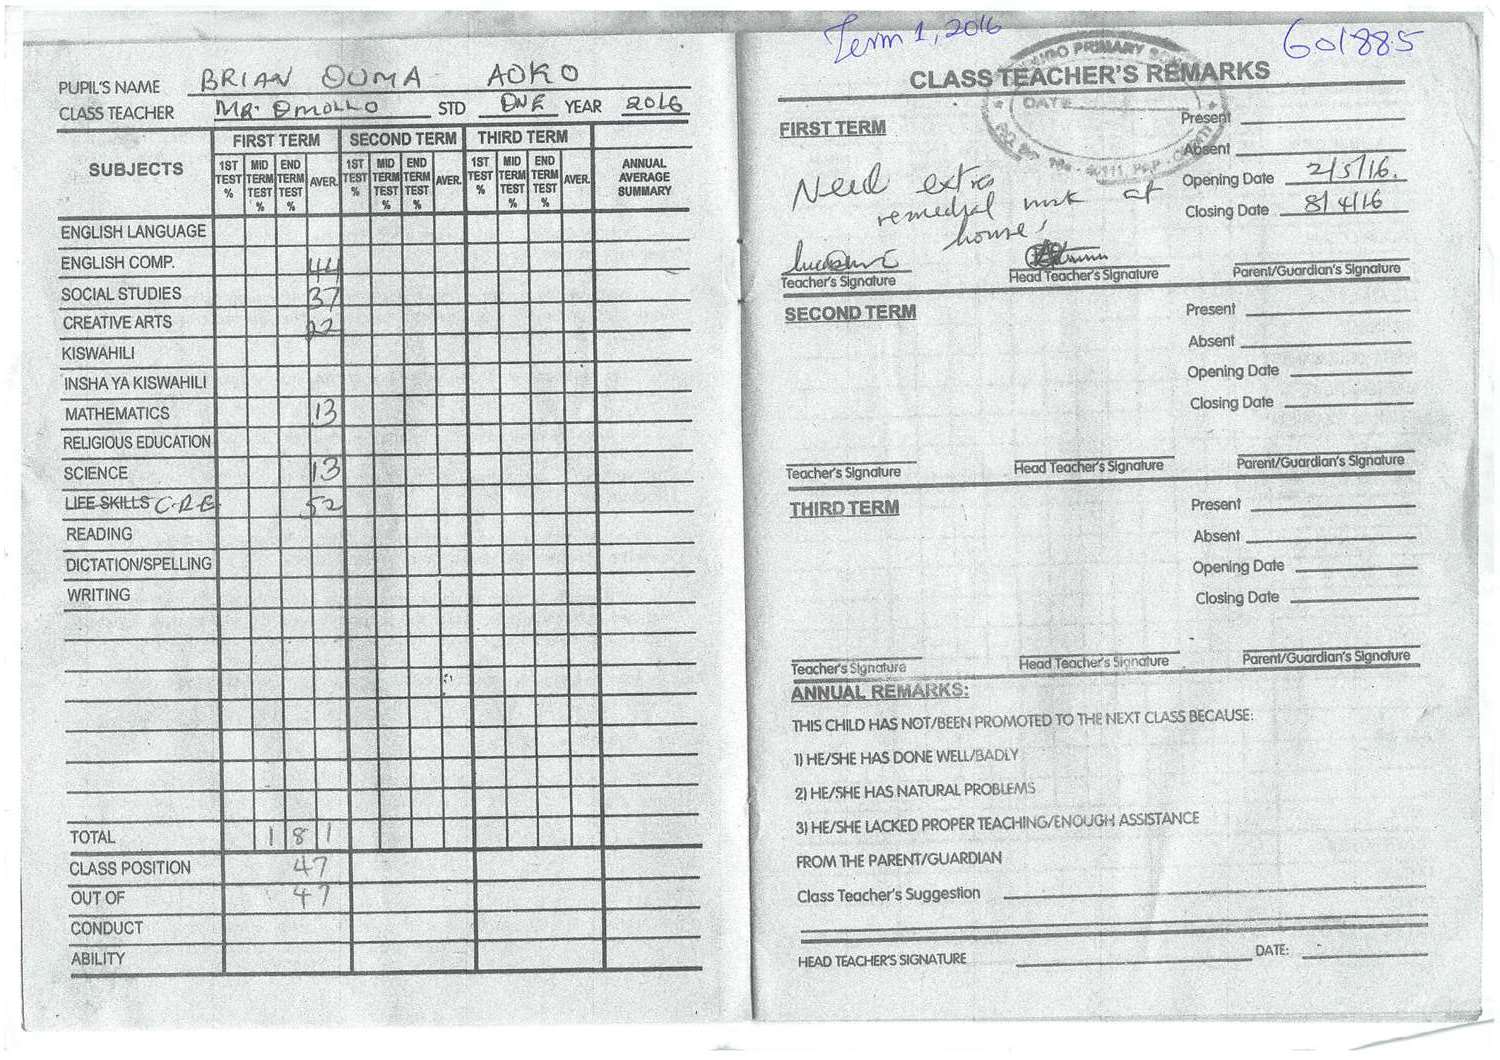 Term 1, 2016
601885
PUPIL'S NAME BRIAN OUMA AOKO
CLASS TEACHER MR. OMOLLO STD ONE YEAR 2016
SUBJECTS FIRST TERM SECOND TERM THIRD TERM ANNUAL AVERAGE SUMMARY
1ST TEST % MID TERM TEST % END TERM TEST % AVER. 1ST TEST % MID TERM TEST % END TERM TEST % AVER. 1ST TEST % MID TERM TEST % END TERM TEST % AVER.
ENGLISH LANGUAGE
ENGLISH COMP. 44
SOCIAL STUDIES 37
CREATIVE ARTS 22
KISWAHILI
INSHA YA KISWAHILI
MATHEMATICS 13
RELIGIOUS EDUCATION
SCIENCE 13
LIFE SKILLS C.R.E 52
READING
DICTATION/SPELLING
WRITING
TOTAL 181
CLASS POSITION 47
OUT OF 47
CONDUCT
ABILITY
PRIMARY
DATE
CLASS TEACHER'S REMARKS
FIRST TERM
Present
Absent
Opening Date 2/5/16.
Closing Date 8/4/16
Need extra
remedial work at
house.
Teacher's Signature Head Teacher's Signature Parent/Guardian's Signature
SECOND TERM
Present
Absent
Opening Date
Closing Date
Teacher's Signature Head Teacher's Signature Parent/Guardian's Signature
THIRD TERM
Present
Absent
Opening Date
Closing Date
Teacher's Signature Head Teacher's Signature Parent/Guardian's Signature
ANNUAL REMARKS:
THIS CHILD HAS NOT/BEEN PROMOTED TO THE NEXT CLASS BECAUSE:
1) HE/SHE HAS DONE WELL/BADLY
2) HE/SHE HAS NATURAL PROBLEMS
3) HE/SHE LACKED PROPER TEACHING/ENOUGH ASSISTANCE
FROM THE PARENT/GUARDIAN
Class Teacher's Suggestion
HEAD TEACHER'S SIGNATURE DATE: